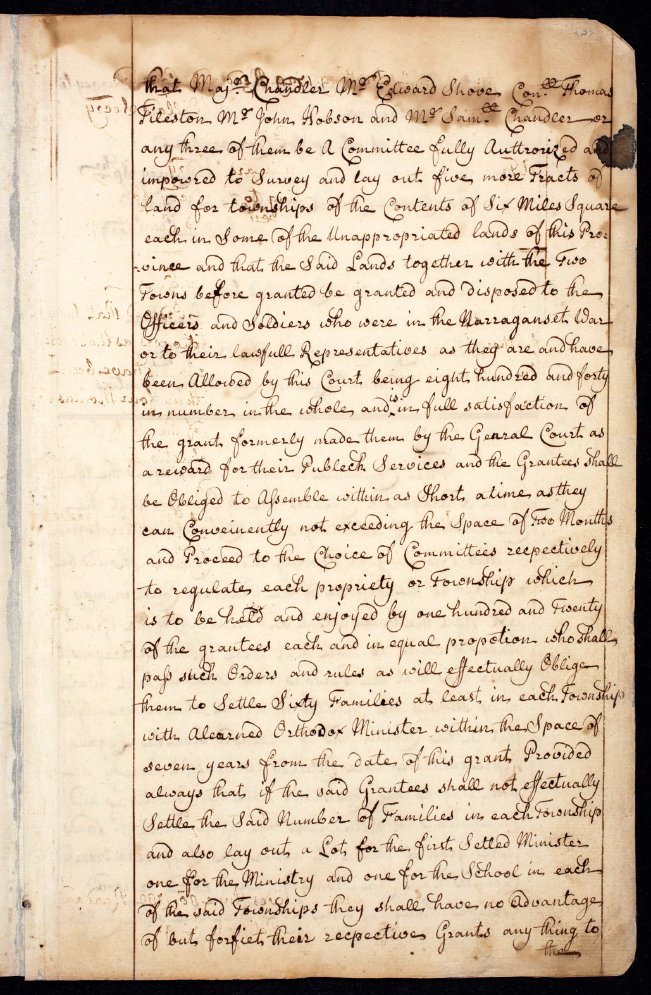 that Majr. Chandler Mr Edward Shove Conll. Thomas
Tileston Mr John Hobson and Mr Samll. Chandler or
any three of them be A Committee fully Authorized and
impowred to Survey and lay out five more Tracts of
land for townships of the Contents of Six Miles Square
each in Some of the Unappropriated lands of this Pro:
vince and that the Said Lands together with the Two
Towns before granted be granted and disposed to the
Officers and Soldiers who were in the Narraganset War
or to their lawfull Representatives as they are and have
been Allowed by this Court being eight hundred and forty
in number in the whole and is in full satisfaction of
the grant formerly made them by the Genaral Court as
a reward for their Publeck Services and the Grantees shall
be Obliged to Assemble within as Short a time as they
can Conveinently not exceeding the Space of Two Months
and Proceed to the Choice of Committees recpectively
to regulate each propriety or Township which
is to be held and enjoyed by one hundred and Twenty
of the grantees each and in equal propotion who shall
pass such Orders and rules as will effectually Oblige
them to Settle Sixty Families at least in each Township
with A learned Orthodox Minister within the Space of
seven years from the date of this grant Provided
always that if the said Grantees shall not effectually
Settle the Said Number of Families in each Township
and also lay out a Lot for the first Setled Minister
one for the Ministry and one for the School in each
of the said Townships they shall have no advantage
of but forfiet their recpective Grants any thing to
the